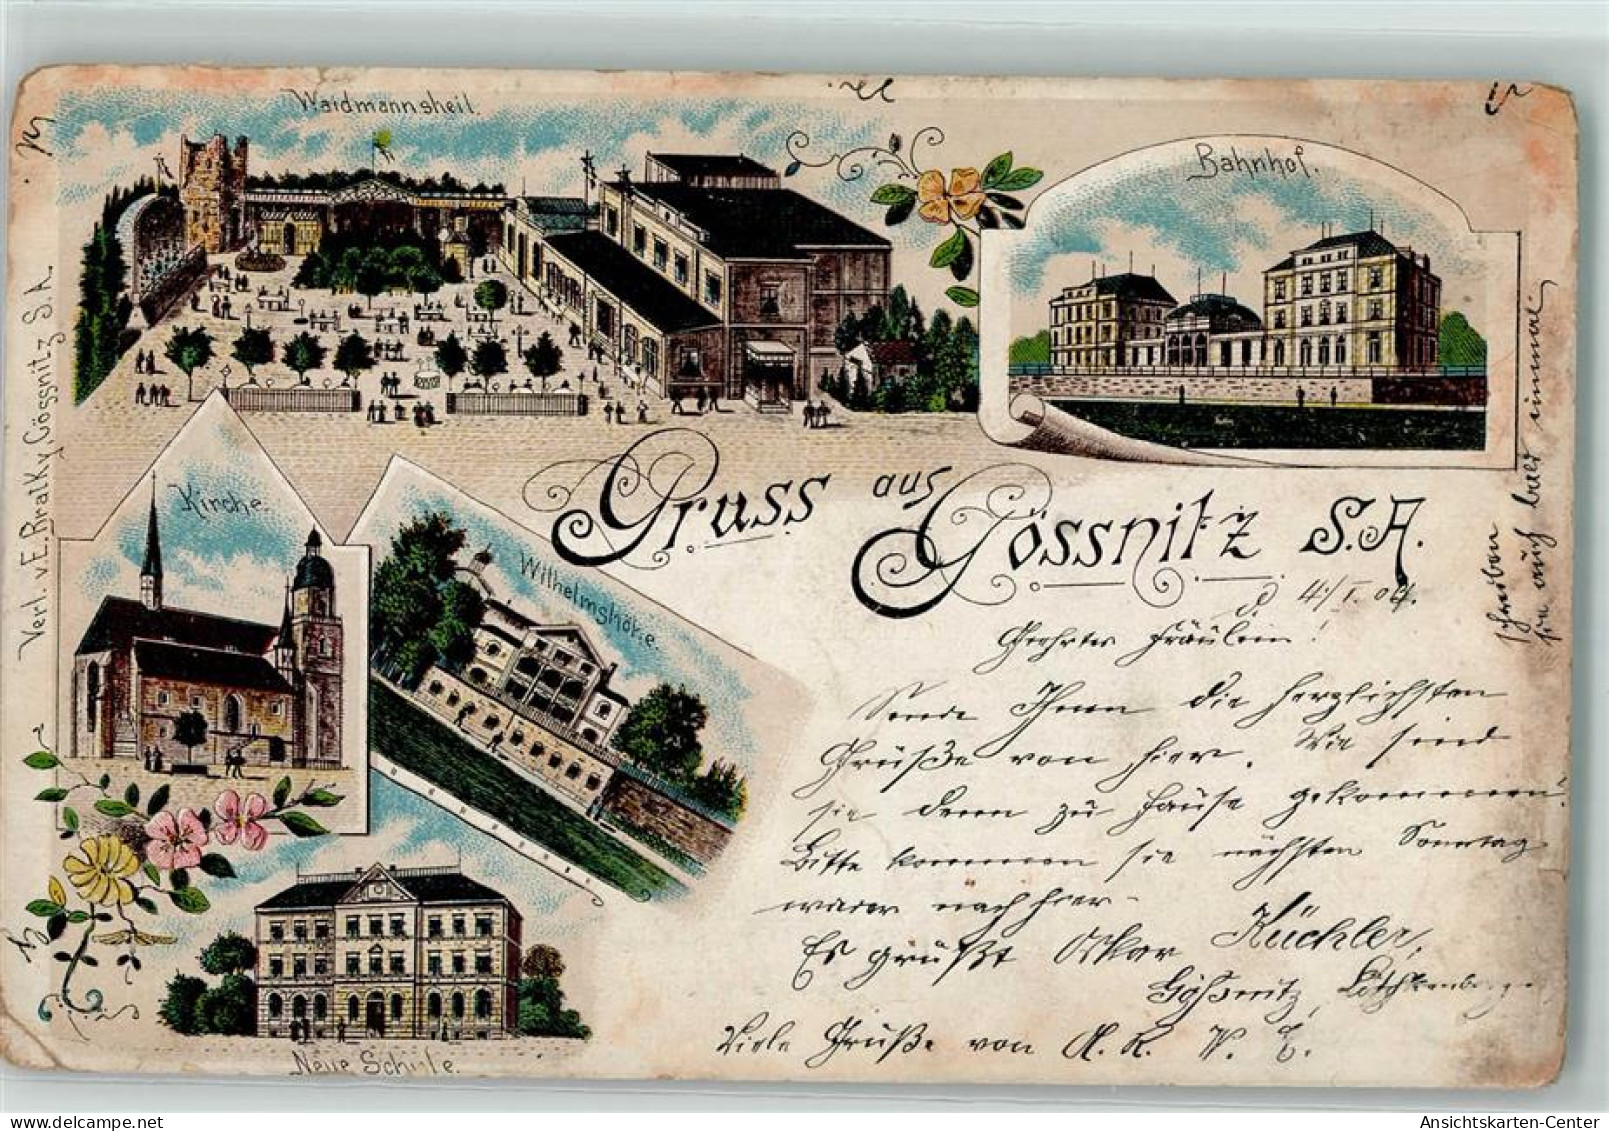 Waidmannsheil.
Bahnhof.
Kirche.
Wilhelmshöhe.
Neue Schule.
Verl. v. E. Bratky, Gössnitz S.A.
Gruss aus
Gössnitz S.A.
d. 4./I. 04.
Geehrtes Fräulein!
Sende Ihnen die herzlichsten
Grüße von hier. Wie sind
sie denn zu Hause gekommen?
Bitte kommen sie nächsten Sonntag
nach hier.
Es grüßt Oskar Küchler,
Gößnitz,
Viele Grüße von A. K. W. E.
schreiben
sie auch bald einmal
Ansichtskarten-Center